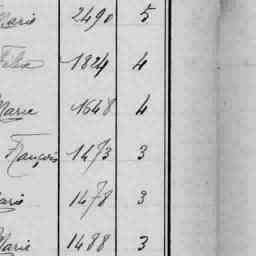 Marie 2490 5
Félix 1824 4
Marie 1648 4
François 1473 3
Marie 1478 3
Marie 1488 3